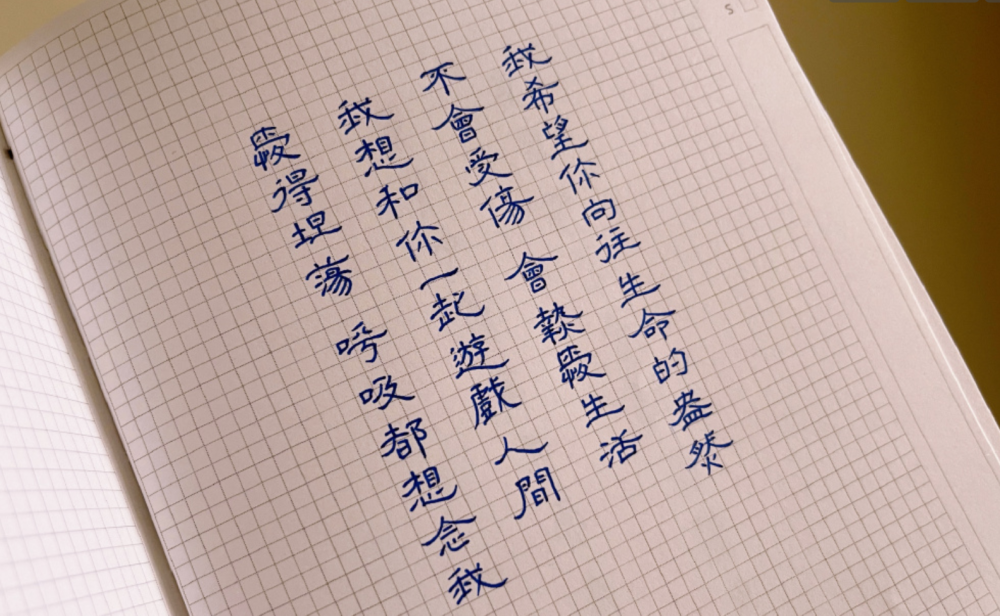 我希望你向往生命的盎然
不會受傷 會熱愛生活
我想和你一起遊戲人間
愛得坦蕩 呼吸都想念我
S